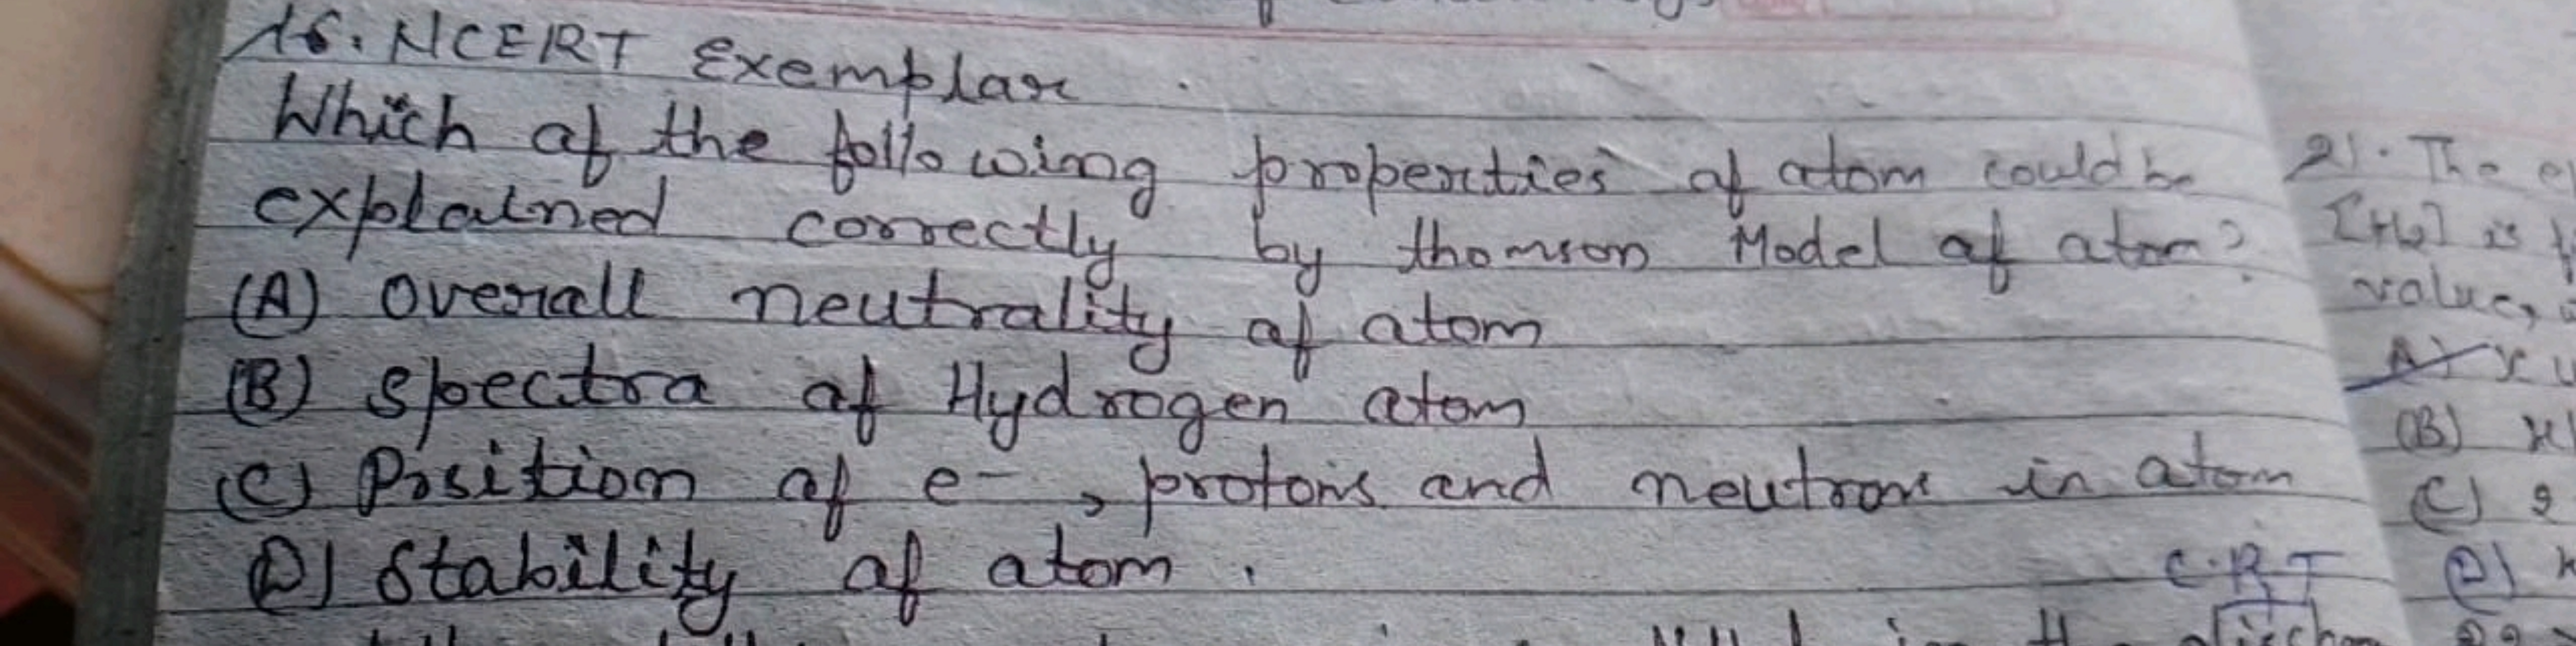 16. NCERT Exemplar
Which of the following properties of atom could be
explained correctly by thomson Model of atom?
(A) Overall neutrality of atom
(B) Spectra of Hydrogen atom
(C) Position of e- , protons and neutrons in atom
(D) Stability of atom.
C.R.T
21. The
[H2] is
value,
A) x
(B) x
(C)
(D)